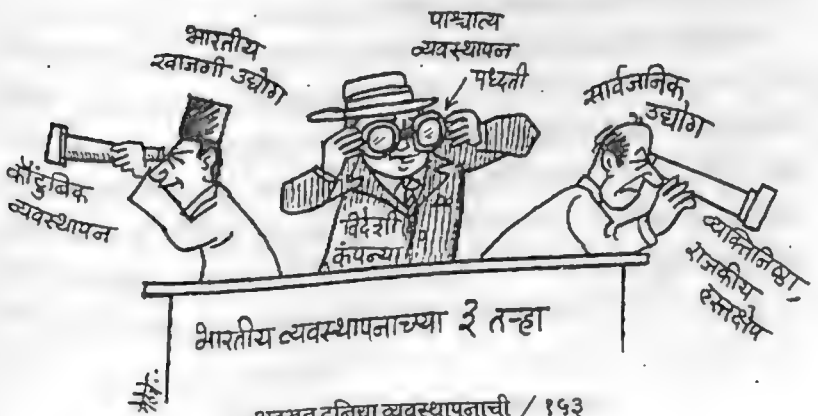 भारतीय
खाजगी उद्योग
पाश्चात्य
व्यवस्थापन
पध्दती
सार्वजनिक
उद्योग
कौटुंबिक
व्यवस्थापन
विदेशी
कंपन्या
व्यक्तिनिष्ठा,
राजकीय
हस्तक्षेप
भारतीय व्यवस्थापनाच्या ३ तऱ्हा
अद्भुत दुनिया व्यवस्थापनाची / १५३